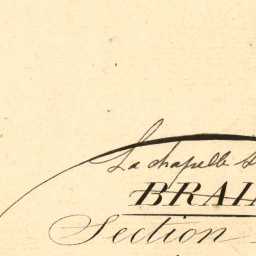 La chapelle
BRAI
Section